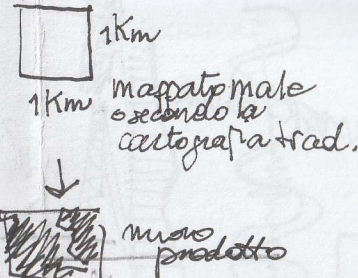 1Km
1Km
mappato male
o secondo la
cartografia trad.
nuovo
prodotto